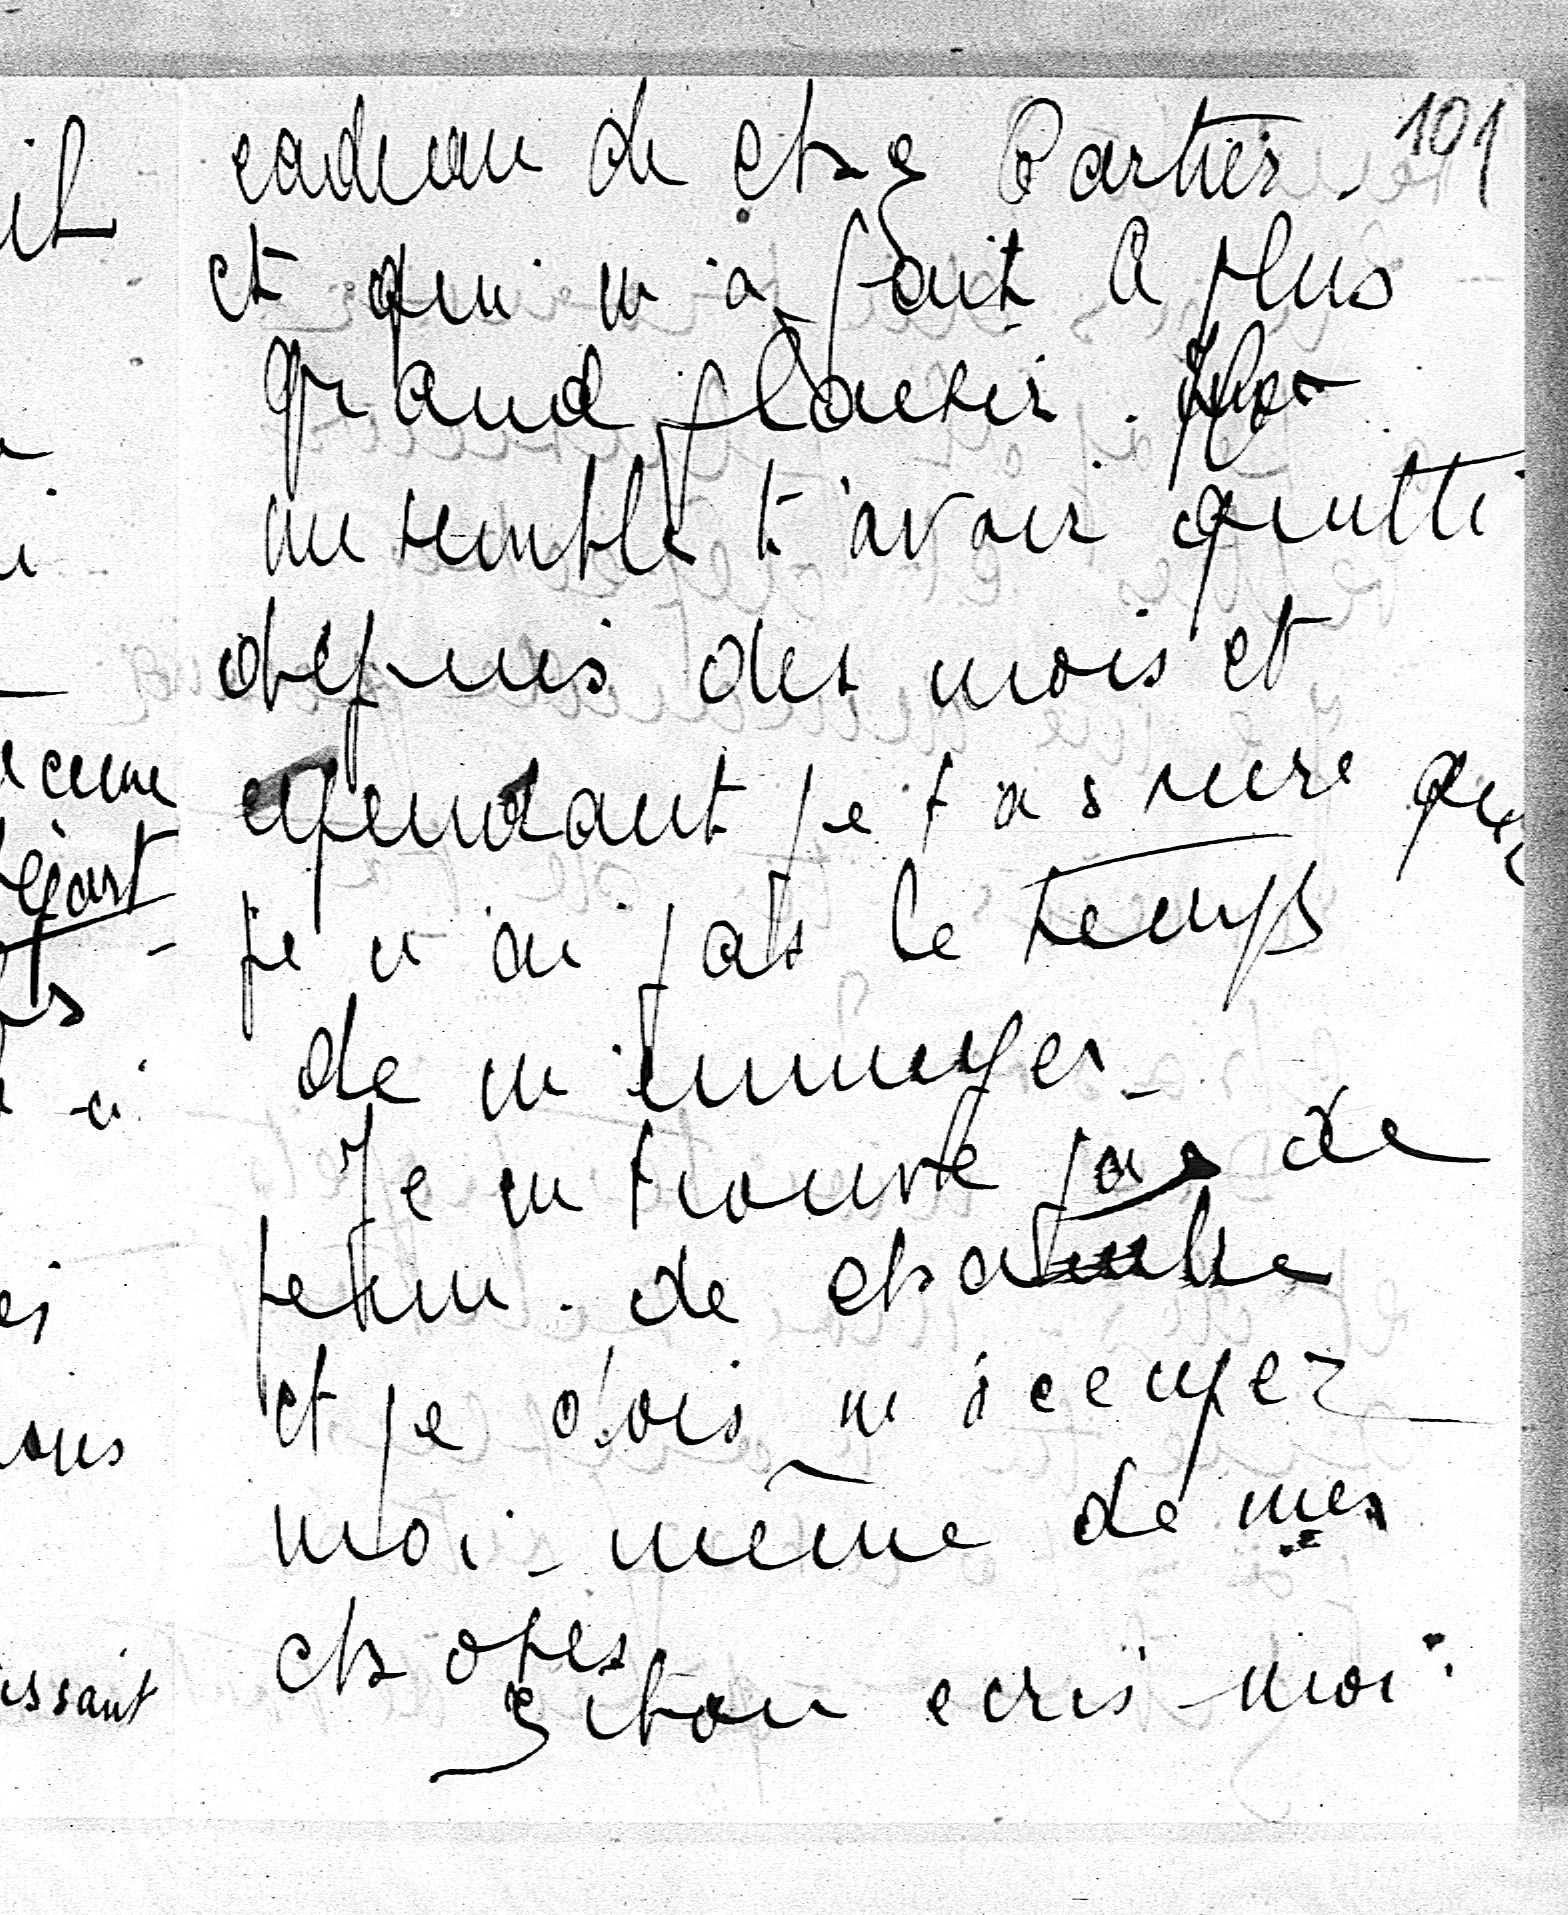 101
cadeau de chez Cartier.
et qui m'a fait le plus
grand plaisir. Il
me semble t'avoir quitté
depuis des mois et
cependant je t'assure que
je n'ai pas le temps
de m'ennuyer.
Je ne trouve pas de
femme de chambre
et je dois m'occuper
moi-même de mes
choses
ecris-moi